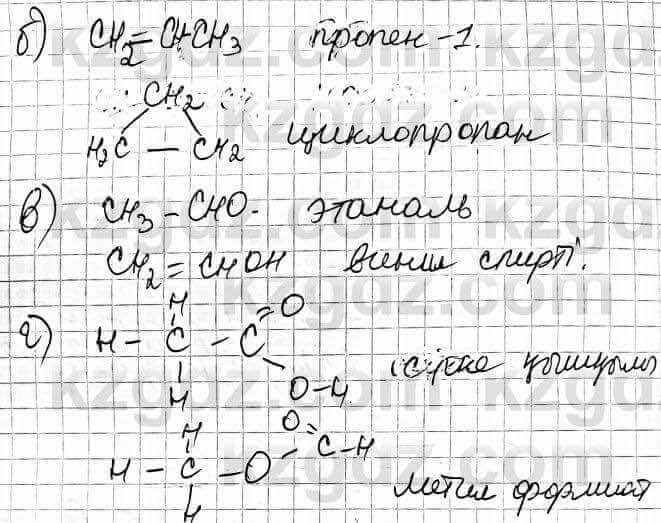 б) CH2=CHCH3 пропен-1.
CH2
H2C — CH2 циклопропан
в) CH3 – CHO. этаналь
CH2 = CHOH винил спирті.
г) H O
H – C – C (сірке қышқылы
H O–H
H O
H – C – O C–H
H метил формиат
kzgdz.com